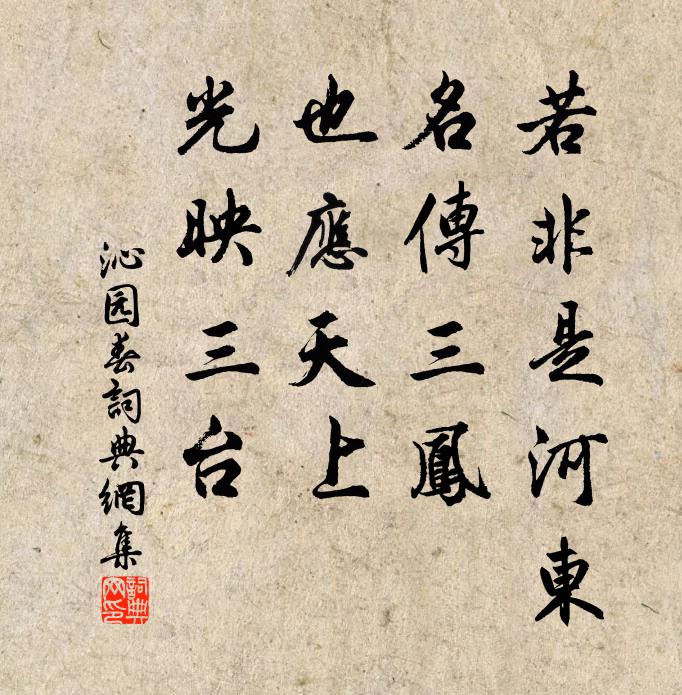 若非是河東
名傳三鳳
也應天上
光映三台
沁园春詞典網集
詞典网印